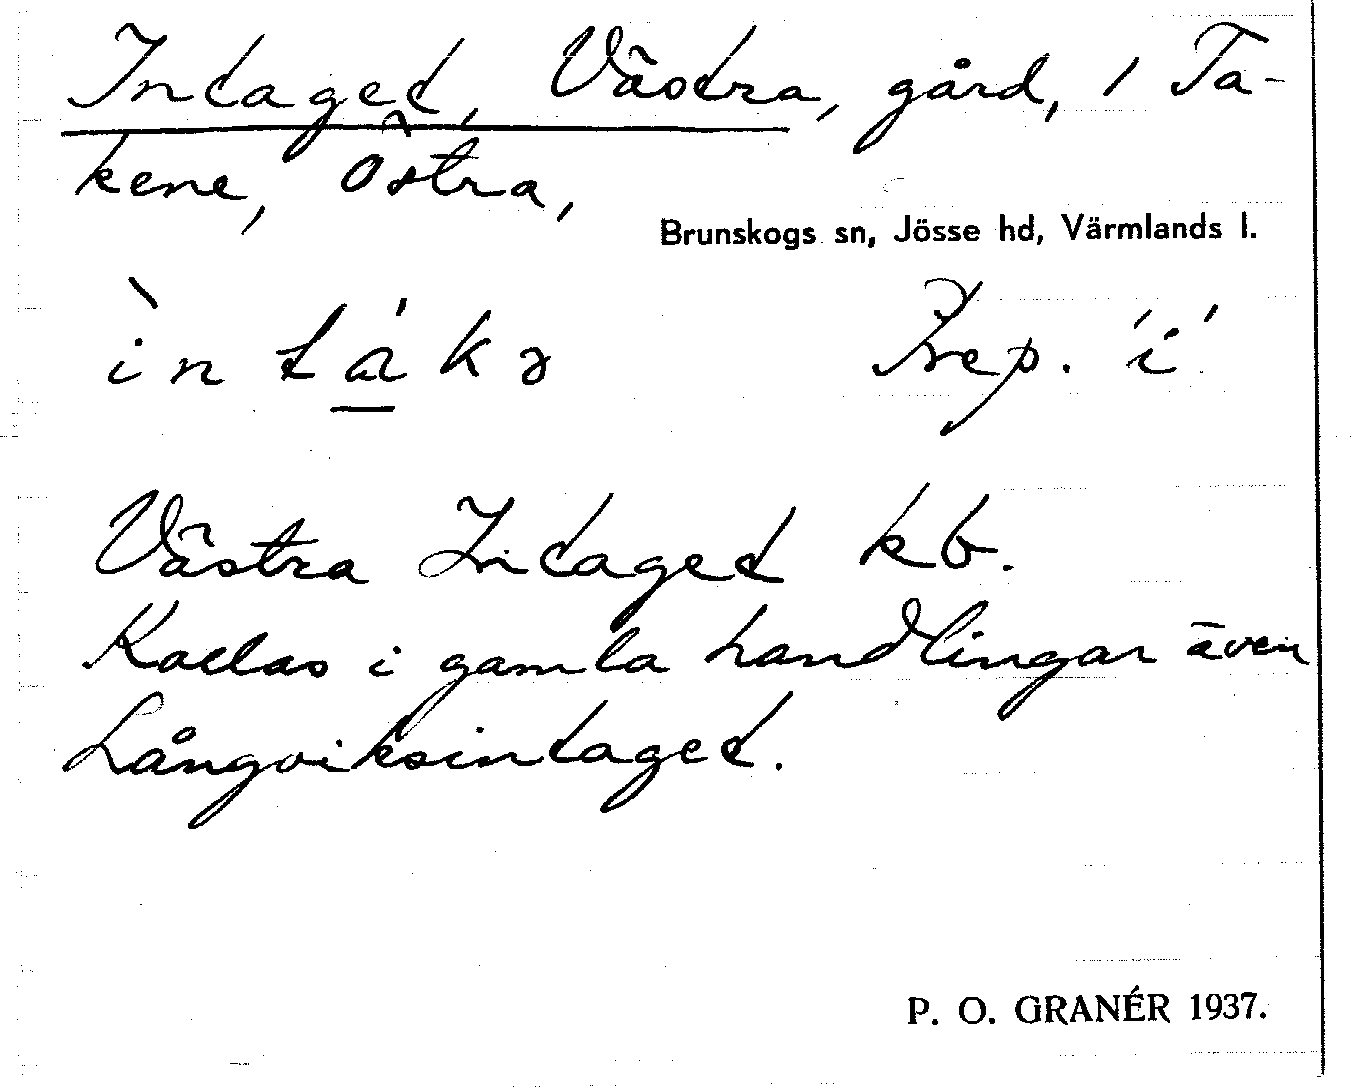 Intaget, Västra, gård, 1 Ta-
kene, Östra,
Brunskogs sn, Jösse hd, Värmlands l.
ìntákə Prep. 'i'
Västra Intaget kb.
Kallas i gamla handlingar även
Långviksintaget.
P. O. GRANÉR 1937.